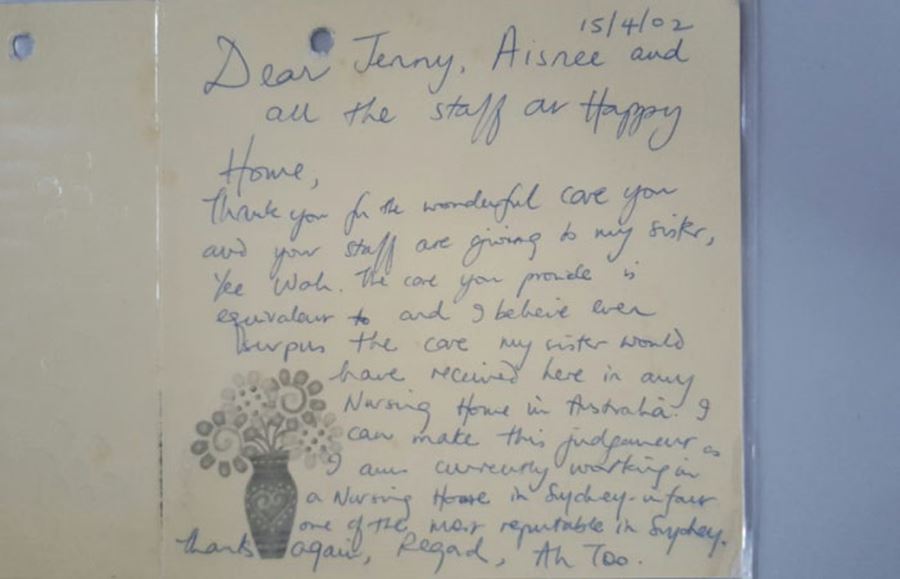 15/4/02
Dear Jenny, Aisnee and
all the staff at Happy
Home,
Thank you for the wonderful care you
and your staff are giving to my sister,
Yee Wah. The care you provide is
equivalent to and I believe even
surpus the care my sister would
have received here in any
Nursing Home in Australia. I
can make this judgement as
I am currently working in
a Nursing Home in Sydney - in fact
one of the most reputable in Sydney.
Thanks again, Regard, Ah Too.